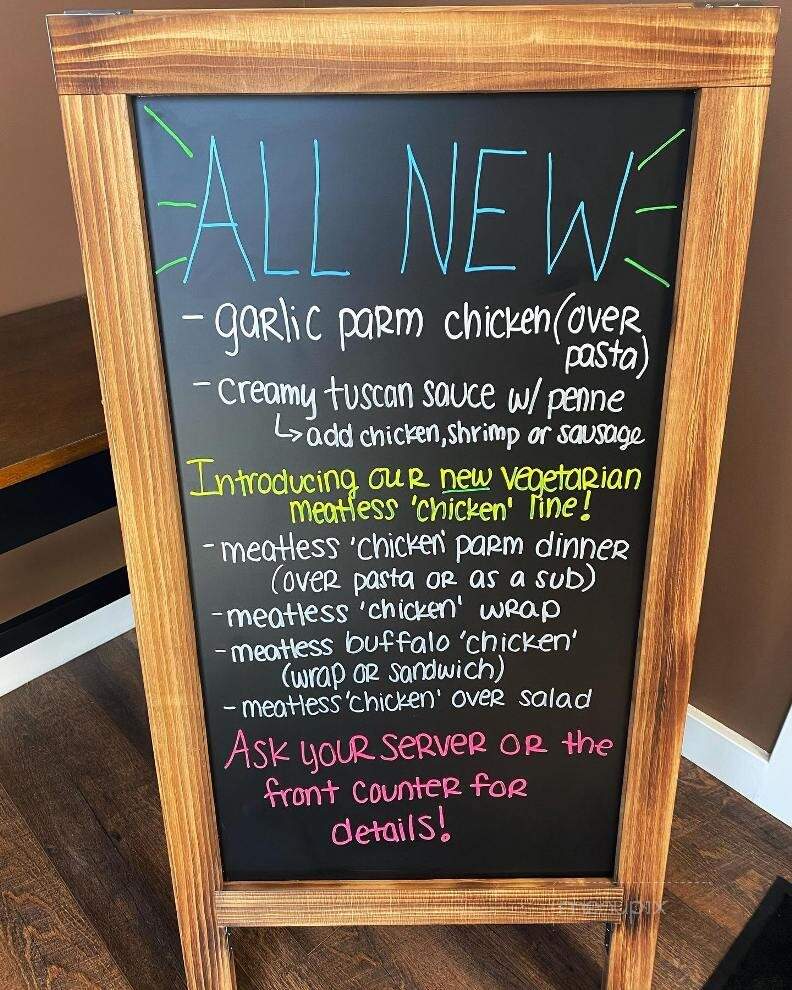 ALL NEW
- garlic parm chicken (over
pasta)
- creamy tuscan sauce w/ penne
↳ add chicken, shrimp or sausage
Introducing our new vegetarian
meatless 'chicken' line!
- meatless 'chicken' parm dinner
(over pasta or as a sub)
- meatless 'chicken' wrap
- meatless buffalo 'chicken'
(wrap or sandwich)
- meatless 'chicken' over salad
Ask your server or the
front counter for
details!
menupix